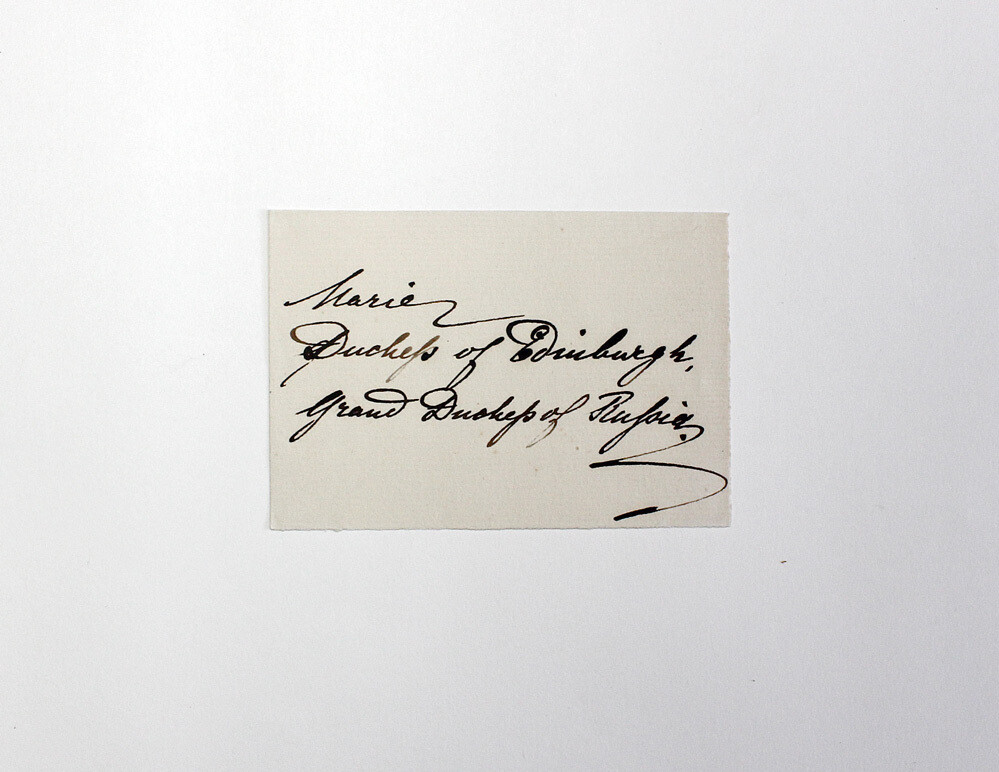 Marie
Duchess of Edinburgh,
Grand Duchess of Russia.